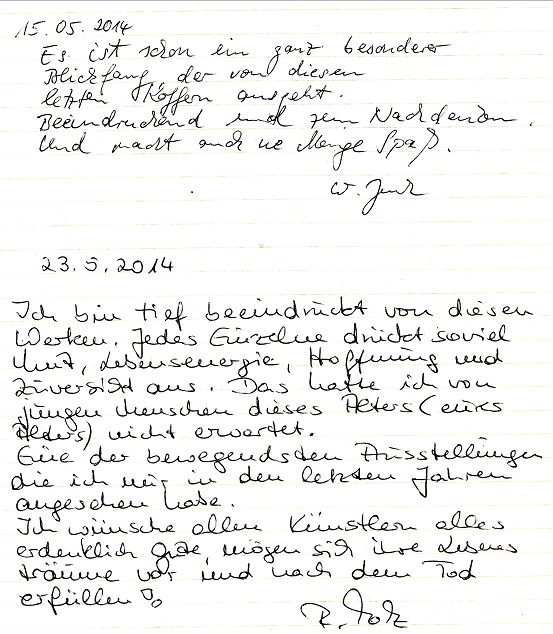 15.05.2014
Es ist schon ein ganz besonderer
Blickfang, der von diesen
letzten Koffern ausgeht.
Beeindruckend und zum Nachdenken.
Und macht auch ne Menge Spaß.
W.
23.5.2014
Ich bin tief beeindruckt von diesen
Werken. Jedes Einzelne drückt soviel
Mut, Lebensenergie, Hoffnung und
Zuversicht aus. Das hatte ich von
jungen Menschen dieses Alters (eures
Alters) nicht erwartet.
Eine der bewegendsten Ausstellungen
die ich mir in den letzten Jahren
angesehen habe.
Ich wünsche allen Künstlern alles
erdenklich Gute, mögen sich ihre Lebens
träume vor und nach dem Tod
erfüllen!
R.